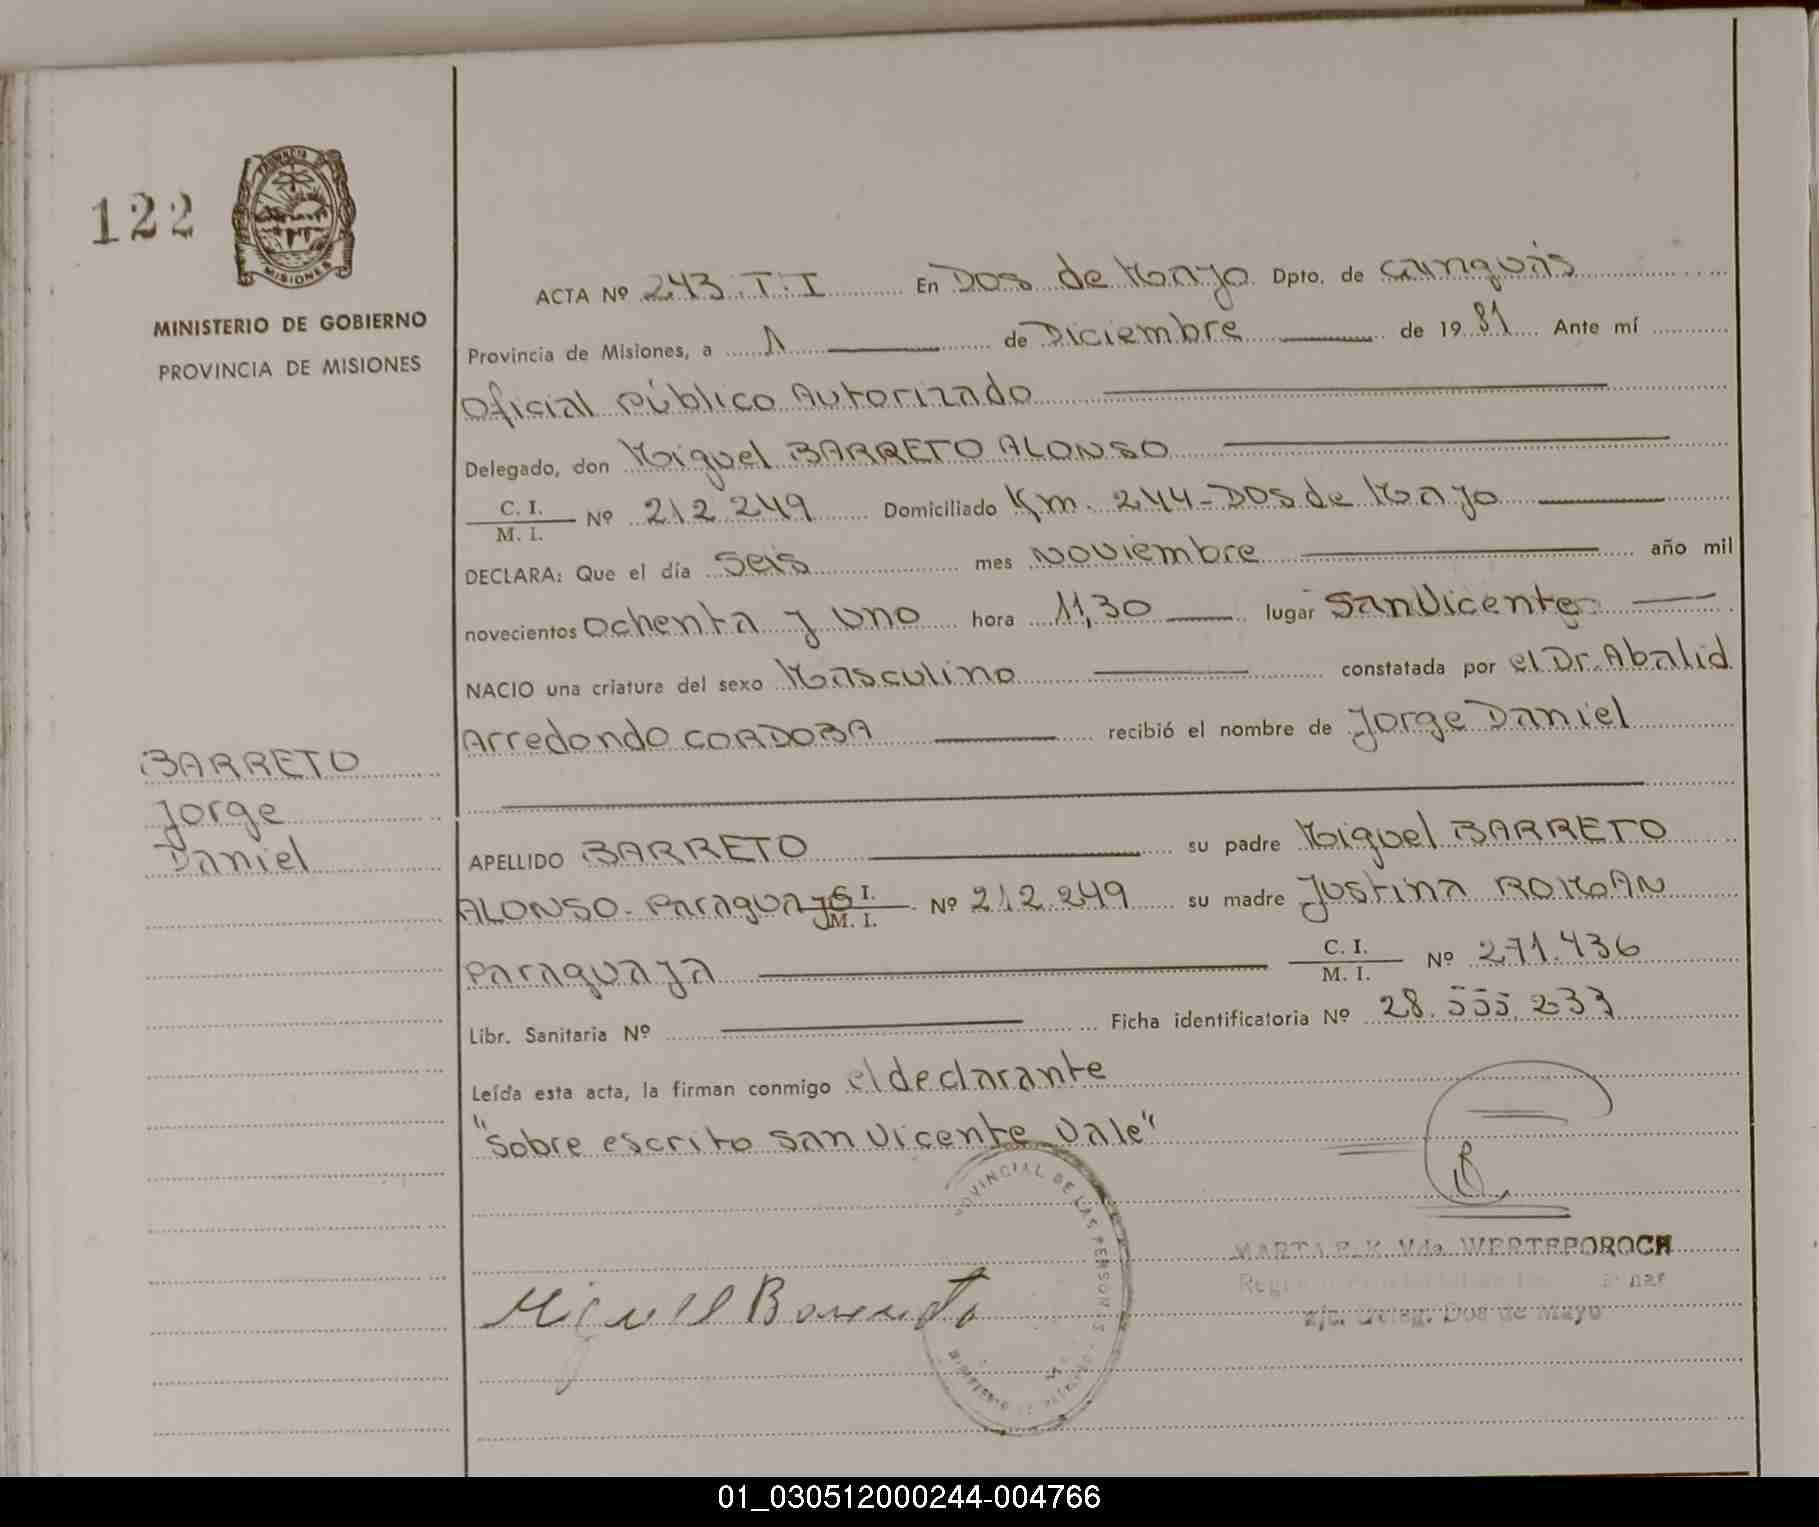 122
MINISTERIO DE GOBIERNO
PROVINCIA DE MISIONES
ACTA Nº 243.T.I En Dos de Mayo Dpto. de Cainguás
Provincia de Misiones, a 1 de Diciembre de 1981 Ante mí
Oficial Público Autorizado
Delegado, don Miguel BARRETO ALONSO
C. I.
M. I. Nº 212.249 Domiciliado Km. 244-Dos de Mayo
DECLARA: Que el día Seis mes Noviembre año mil
novecientos Ochenta y Uno hora 11,30 lugar San Vicente
NACIO una criatura del sexo Masculino constatada por el Dr. Abalid
Arredondo CORDOBA recibió el nombre de Jorge Daniel
BARRETO
Jorge
Daniel
APELLIDO BARRETO su padre Miguel BARRETO
ALONSO-Paraguayo C. I. M. I. Nº 212.249 su madre Justina ROMAN
Paraguaya C. I. M. I. Nº 271.436
Libr. Sanitaria Nº Ficha identificatoria Nº 28.555.233
Leída esta acta, la firman conmigo el declarante
"Sobre escrito San Vicente Vale"
PROVINCIAL DE LAS PERSONAS
Vda. WERTEPOROCH
Deleg. Dos de Mayo
Miguel Barreto
01_030512000244-004766